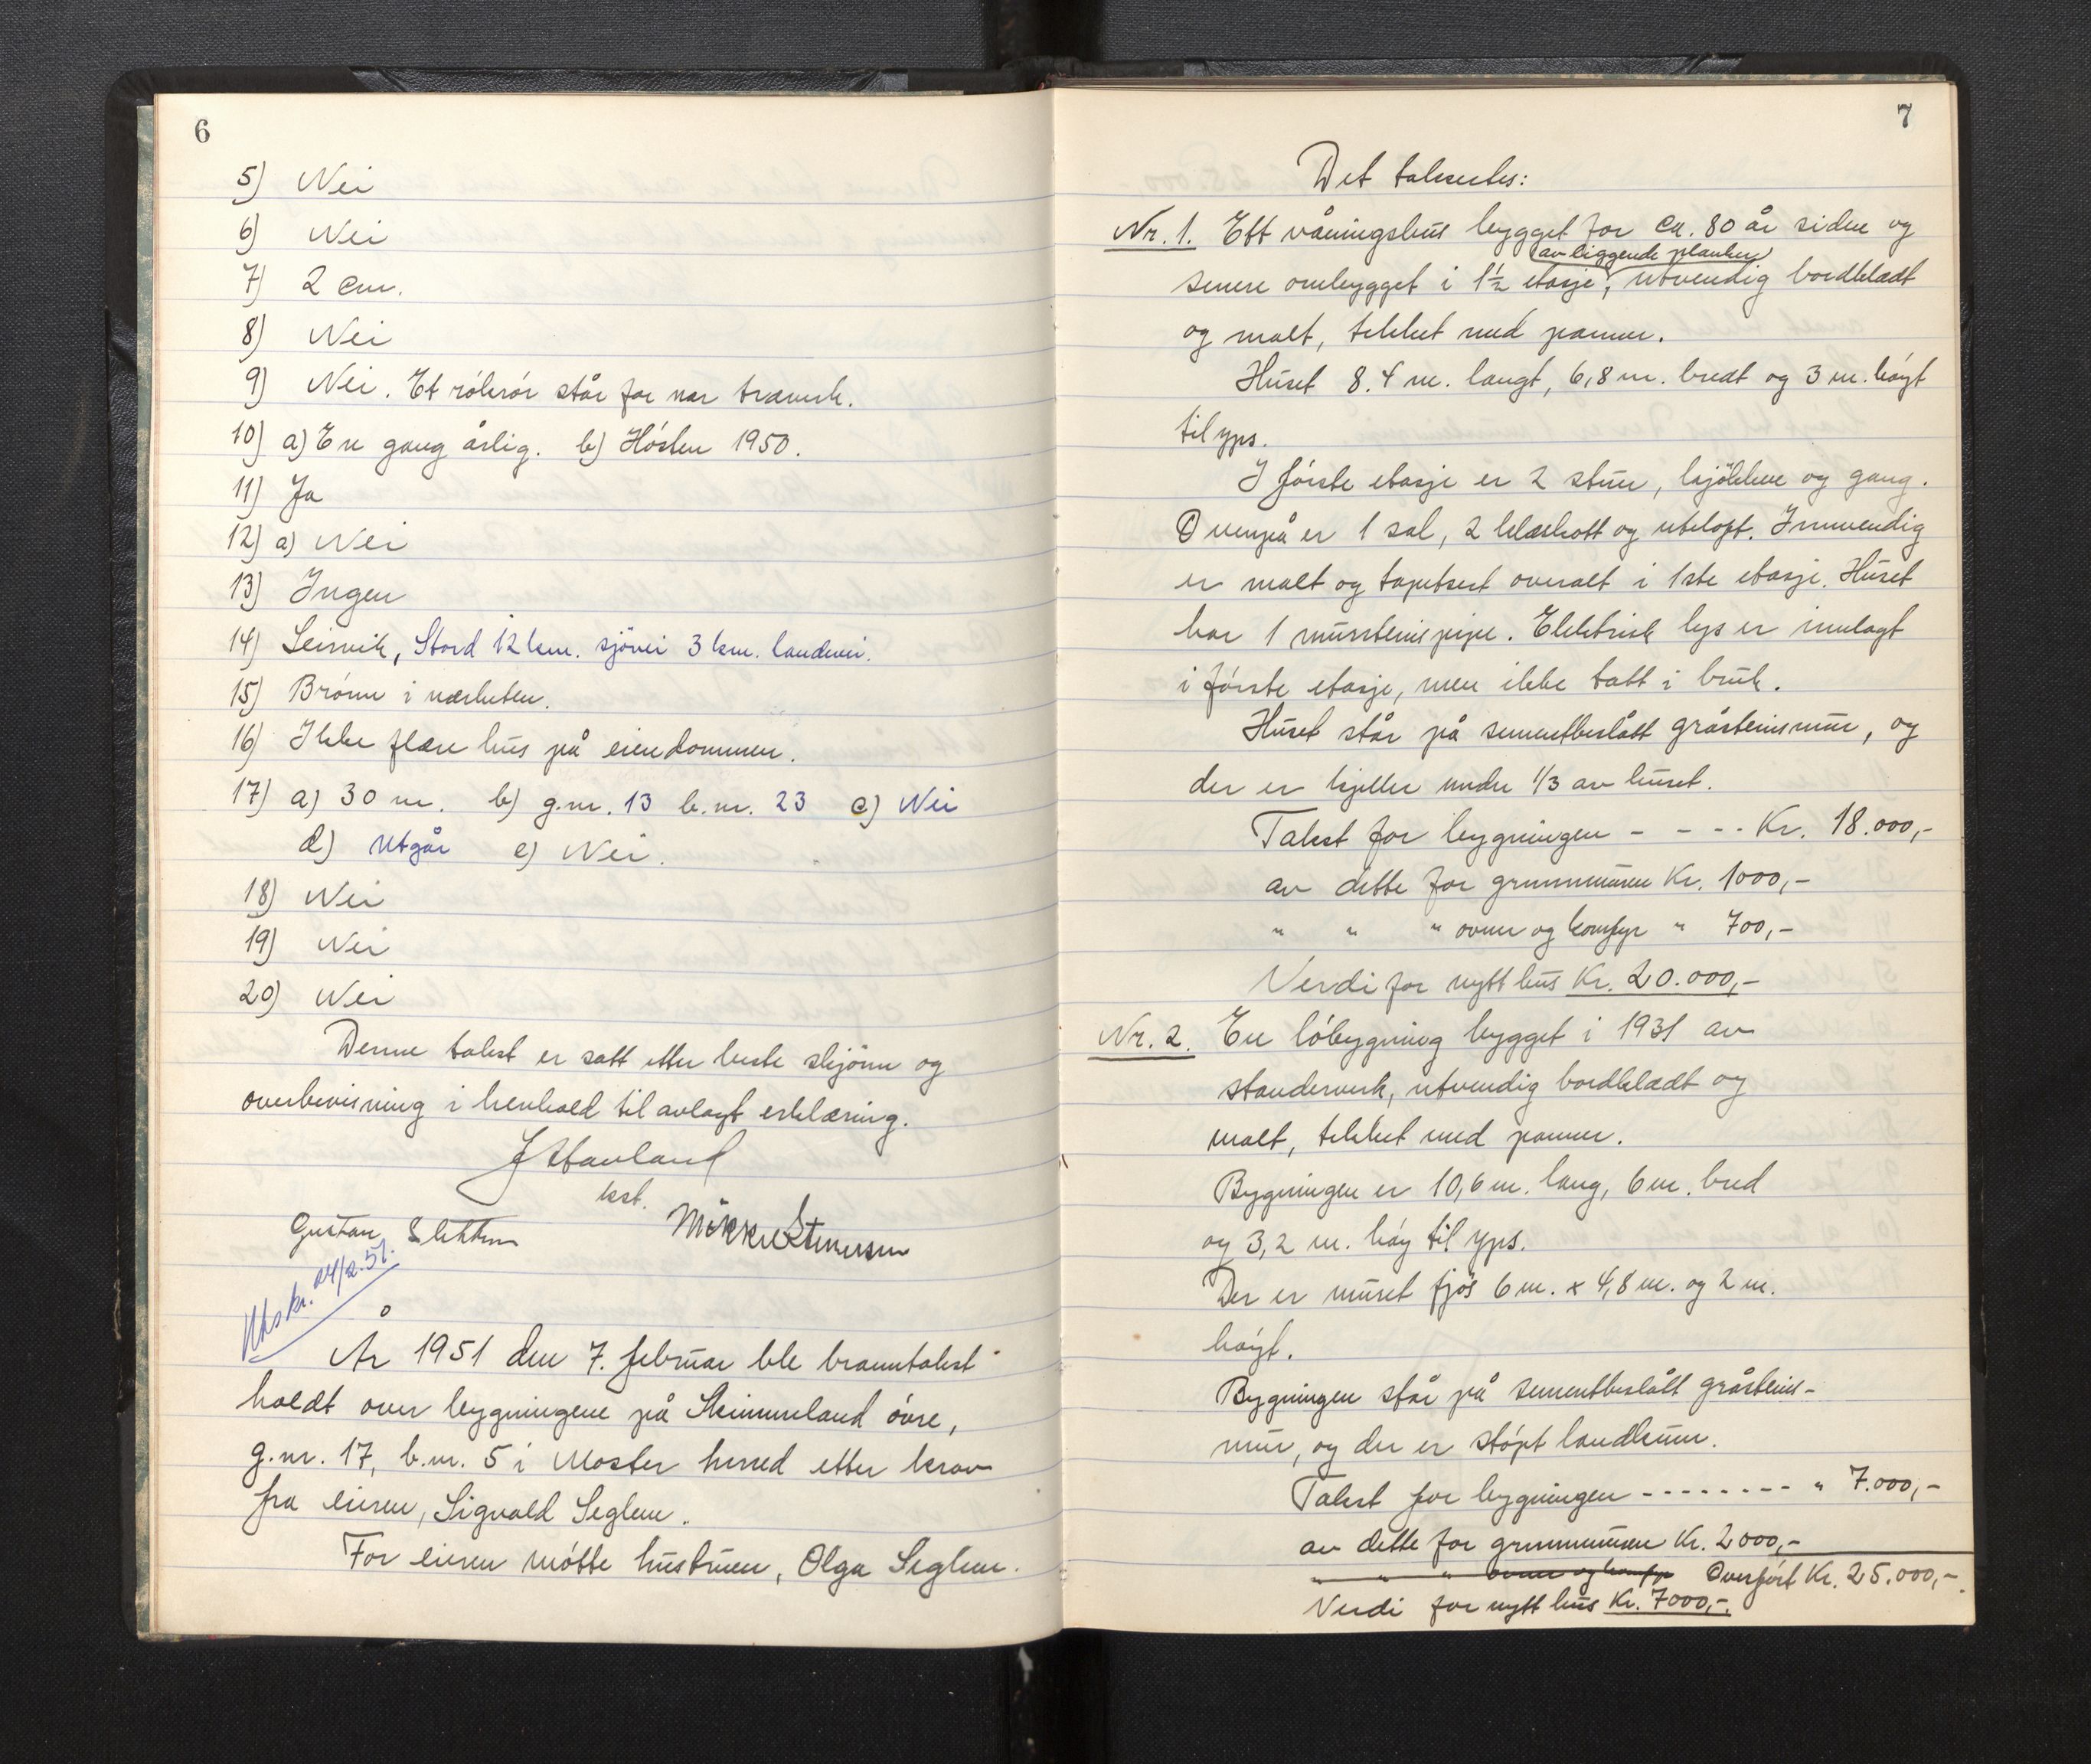 6
5) Nei
6) Nei
7) 2 cm.
8) Nei
9) Nei. Et rökrör står for nær treverk.
10) a) En gang årlig. b) Hösten 1950.
11) Ja
12) a) Nei
13) Ingen
14) Leirvik, Stord 12 km. sjövei 3 km. landevei.
15) Brönn i nærheten.
16) Ikke flere hus på eiendommen.
17) a) 30 m. b) g.nr. 13 b.nr. 23 c) Nei
d) Utgår e) Nei.
18) Nei
19) Nei
20) Nei
Denne takst er satt etter beste skjönn og
overbevisning i henhold til avlagt erklæring.
J Havland
kst.
Gustav Slettun
Utskr. 24/2.51.
År 1951 den 7. februar ble branntakst
holdt over bygningene på Skimmeland övre,
g.nr. 17, b.nr. 5 i Moster herred etter krav
fra eieren, Sigvald Seglem.
For eieren mötte hustruen, Olga Seglem.
7
Det taksertes:
Nr. 1. Ett våningshus bygget for ca. 80 år siden og
av liggende planker
senere ombygget i 1½ etasje, utvendig bordkledt
og malt, tekket med panner.
Huset 8.4 m. langt, 6,8 m. bredt og 3 m. höyt
til gps.
I förste etasje er 2 stuer, kjökken og gang.
Ovenpå er 1 sal, 2 kleskott og uteloft. Innvendig
er malt og tapetsert overalt i 1ste etasje. Huset
har 1 mursteinspipe. Elektrisk lys er innlagt
i förste etasje, men ikke tatt i bruk.
Huset står på sementbeslått gråsteinsmur, og
der er kjeller under 1/3 av huset.
Takst for bygningen - - - - Kr. 18.000,-
av dette for grunnmuren Kr. 1000,-
" " " ovner og komfyr " 700,-
Verdi for nytt hus Kr. 20.000,-
Nr. 2. En löbygning bygget i 1931 av
standerverk, utvendig bordkledt og
malt, tekket med panner.
Bygningen er 10,6 m. lang, 6 m. bred
og 3,2 m. höy til gps.
Der er muret fjös 6 m. x 4,8 m. og 2 m.
höyt.
Bygningen står på sementbeslått gråsteins-
mur, og der er stöpt landkum.
Takst for bygningen - - - - - - - - " 7.000,-
av dette for grunnmuren Kr. 2000,-
" " " ovner og komfyr Overfört Kr. 25.000,-
Verdi for nytt hus Kr. 7000,-.